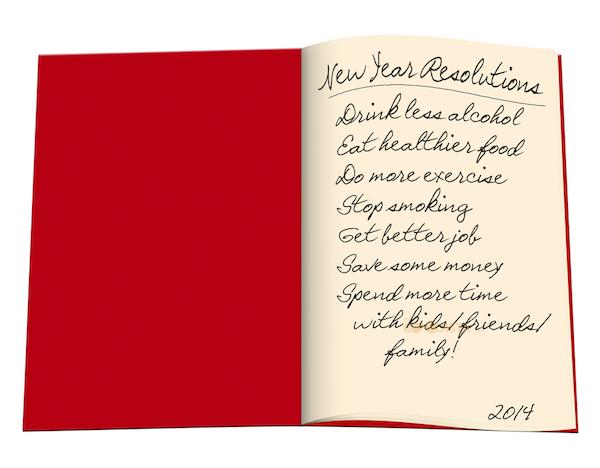 New Year Resolutions
Drink less alcohol
Eat healthier food
Do more exercise
Stop smoking
Get better job
Save some money
Spend more time
with kids/friends/
family!
2014